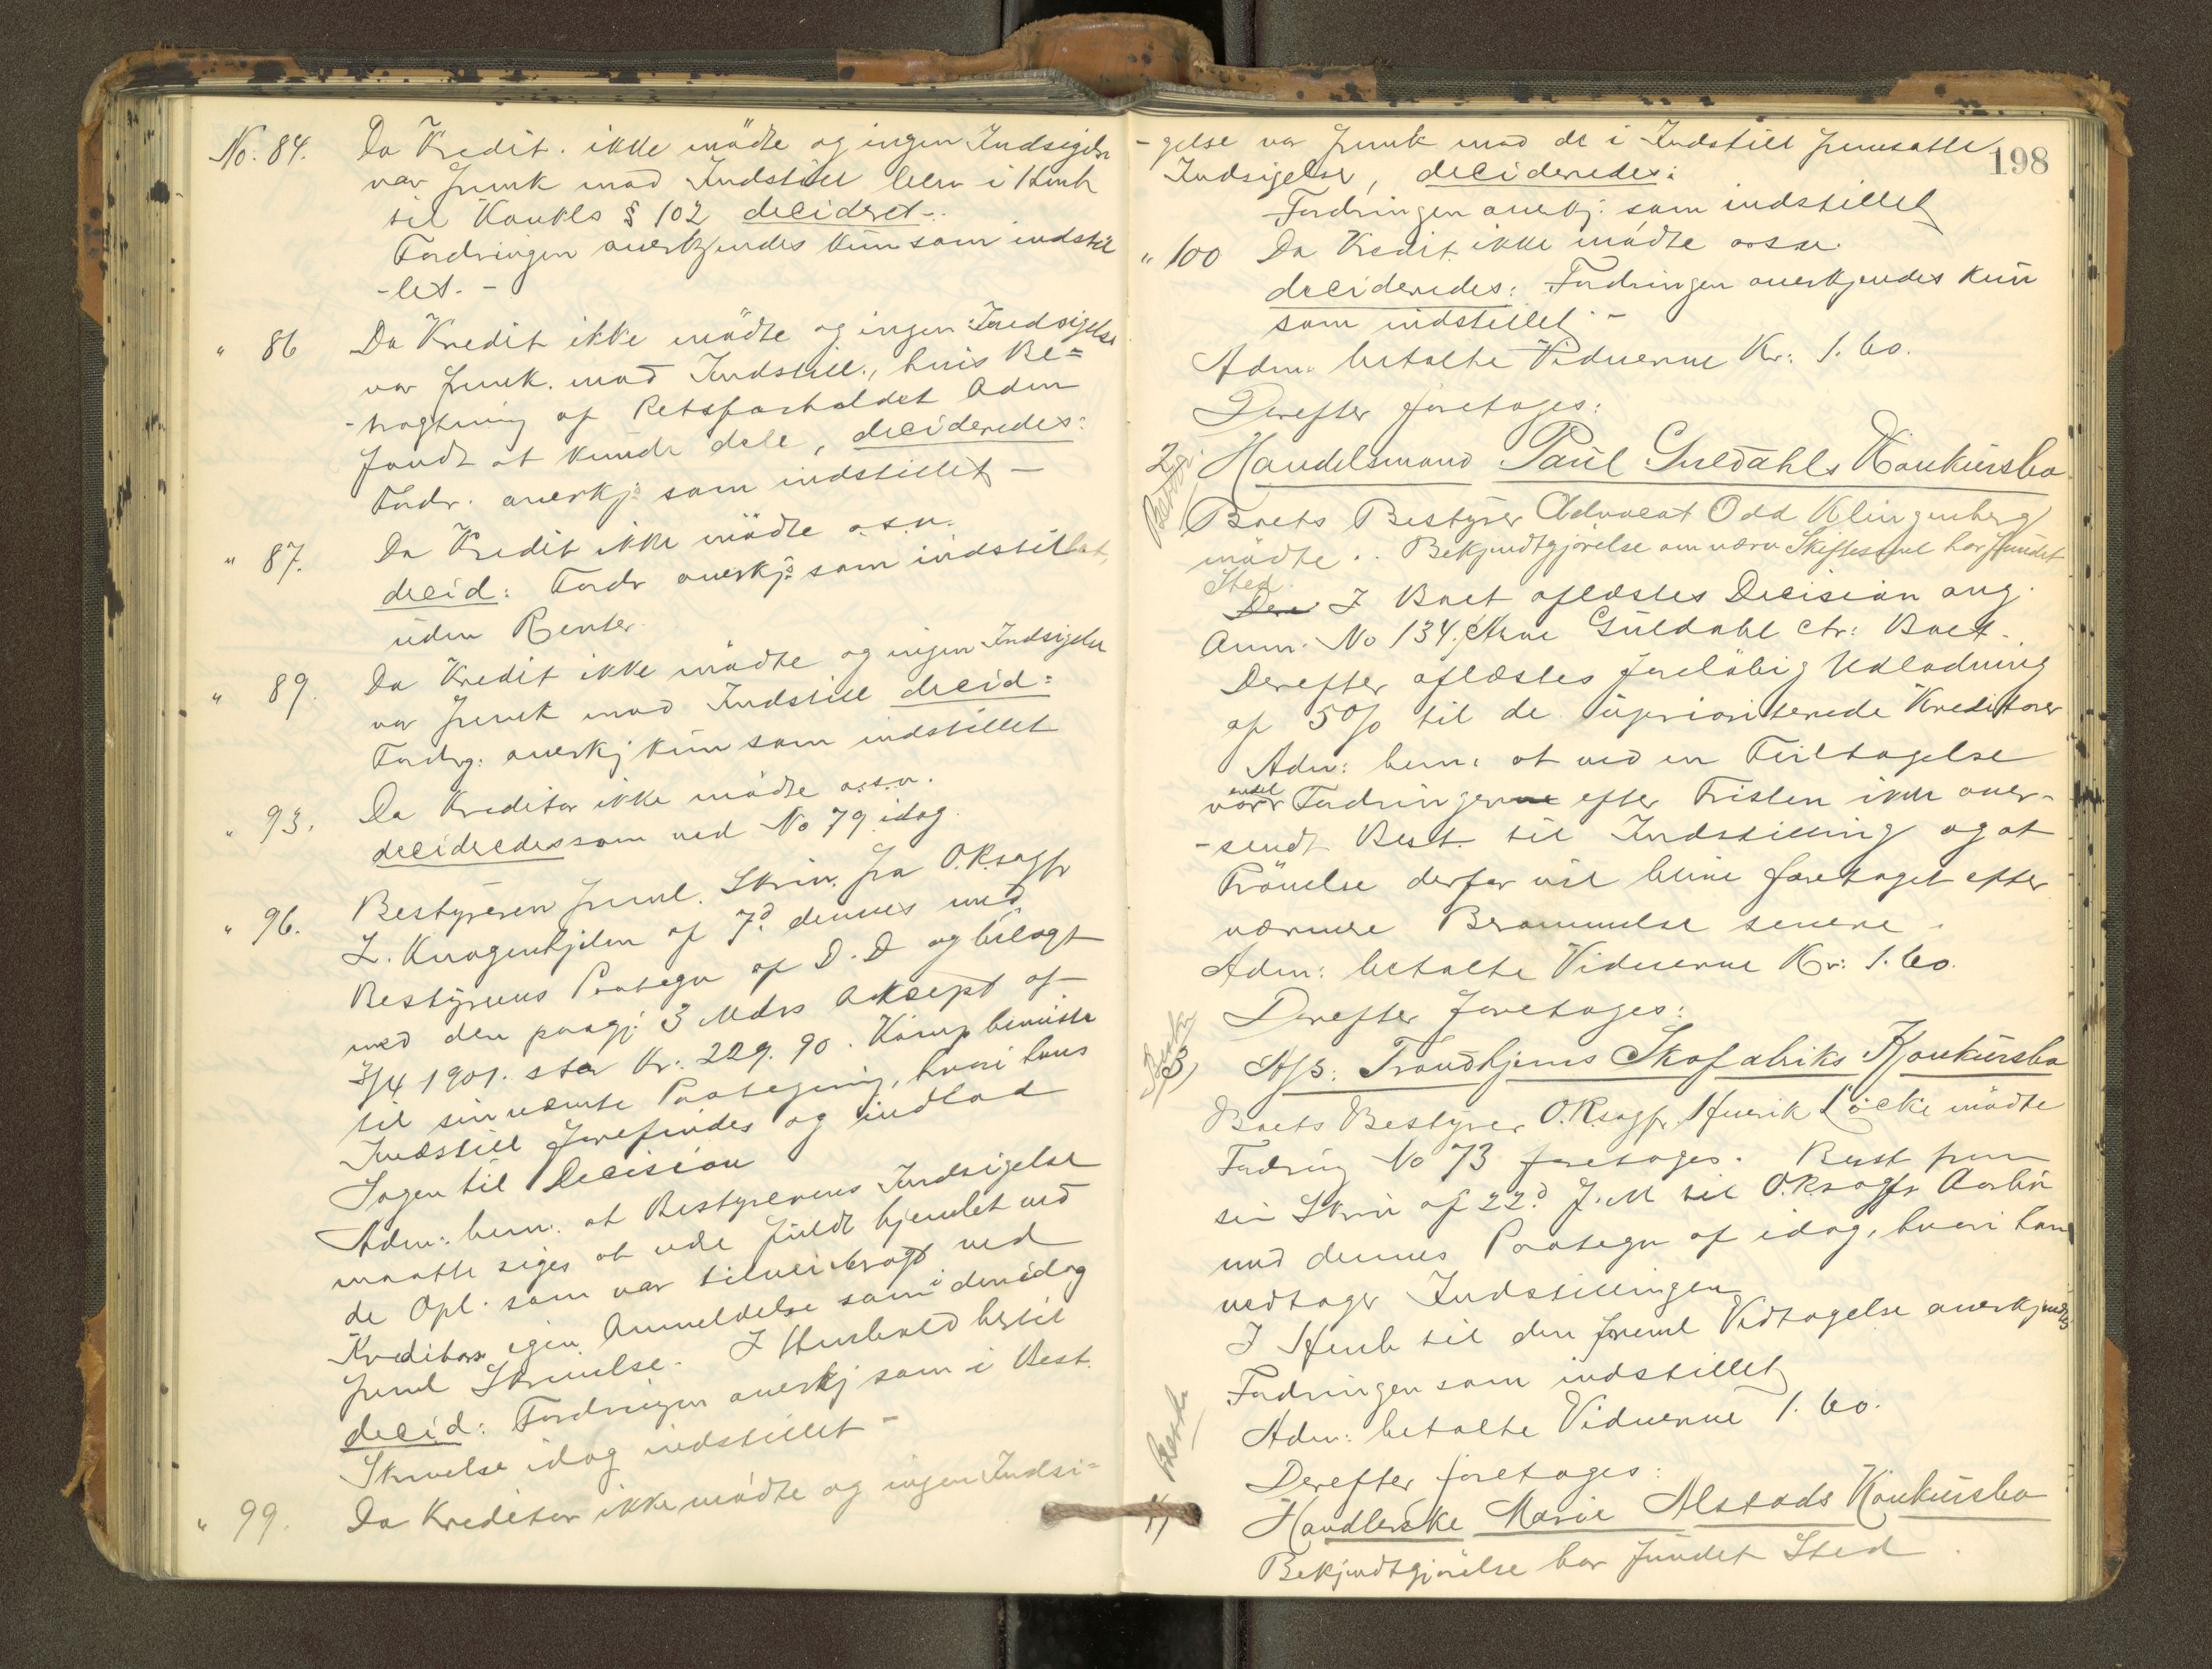 No. 84. Da Kredit. ikke mödte og ingen Indsigelse
var fremk mod Indstill blev i Henh
til Konkls § 102 decideret -.
Fordringen anerkjendes kun som indstil
-let. -
" 86 Da Kredit ikke mödte og ingen Indsigelse
var fremk. mod Indstill., hvis Be=
-tragtning af Retsforholdet Adm
fandt at kunde dele, decideredes:
Fordr. anerkj: som indstillet -
" 87. Da Kredit ikke mödte o.s.v.
decid: Fordr anerkj: som indstillet,
uden Renter.
" 89. Da Kredit ikke mödte og ingen Indsigelse
var fremk mod Indstill decid:
Fordrg: anerkj kun som indstillet
" 93. Da Kreditor ikke mödte o.s.v.
decideredes som ved No 79 idag.
" 96. Bestyreren freml. Skriv. fra O.R.sagfr
L. Knagenhjelm af 7d. dennes med
Bestyrerens Paategn af D.D og bilagt
med den paagj: 3 Mdrs Aksept af
3/4 1901. stor Kr: 229.90. Komp henviste
til sin nævnte Paategning, hvori hans
Indstill forefindes og indlod
Sagen til Decision
Adm: bem: at Bestyrerens Indsigelse
maatte siges at være fuldt hjemlet ved
de Opl. som var tilveiebragt ved
Kreditors egen Anmeldelse som i den idag
freml Skrivelse. I Henhold hertil
decid: Fordringen anerkj som i Best.
Skrivelse idag indstillet -
" 99. Da Kreditor ikke mödte og ingen Indsi=
198
- gelse var fremk mod de i Indstill fremsatte
Indsigelser, decideredes:
Fordringen anerkj: som indstillet
" 100 Da Kredit. ikke mödte o.s.v.
decideredes: Fordringen anerkjendes kun
som indstillet -
Adm: betalte Vidnerne Kr: 1.60.
Derefter foretages:
2, Handelsmand Paul Guldahls Konkursbo
Boets Bestyrer Advocat Odd Klingenberg
mödte.. Bekjendtgjörelse om nærv Skiftessml har fundet
Sted.
Der I Boet oplæstes Decision ang.
Anm: No 134, Guldahl ctr: Boet -
Derefter oplæstes foreløbig Udlodning
af 5% til de uprioriterede Kreditorer
Adm: bem: at ved en Feiltagelse
endel
var Fordringerne efter Fristen ikke over-
-sendt Best. til Indstilling og at
Prövelse derfor vil blive foretaget efter
nærmere Berammelse senere.
Adm: betalte Vidnerne Kr: 1.60.
Derefter foretages:
3, A/S. Trondhjems Skofabriks Konkursbo
Boets Bestyrer O.R.sagfr. Henrik Löcke mödte
Fordring No 73 foretages. Best frem
sin Skriv af 22d. f.M til O.R.sagfr
med dennes Paategn af idag, hvori han
vedtager Indstillingen
I Henh til den freml Vedtagelse anerkjendtes
Fordringen som indstillet
Adm: betalte Vidnerne 1.60.
Derefter foretages:
4, Handlerske Marie Alstads Konkursbo
Bekjendtgjörelse har fundet Sted.